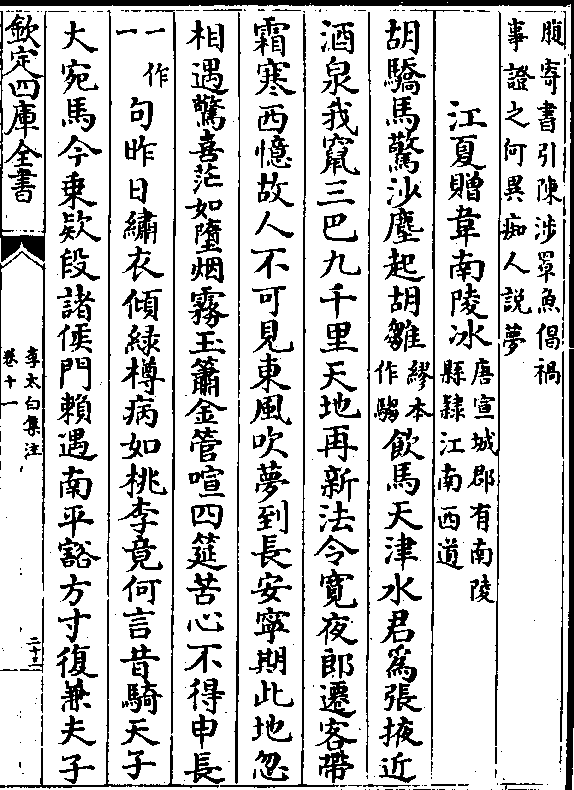 腹寄書引陳涉罩魚倡禍
事證之何異痴人説夢
江夏贈韋南陵冰
唐宣城郡有南陵
縣隸江南西道
胡驕馬驚沙塵起胡雛
繆本
作騶
飲馬天津水君爲張掖近
酒泉我竄三巴九千里天地再新法令寛夜郎遷客帶
霜寒西憶故人不可見東風吹夢到長安寧期此地忽
相遇驚喜茫如墮烟霧玉簫金管喧四筵苦心不得申長
一作
一
句昨日繡衣傾緑樽病如桃李竟何言昔騎天子
大宛馬今乗欵段諸侯門賴遇南平豁方寸復兼夫子
欽定四庫全書
李太白集注
卷十一
二十三